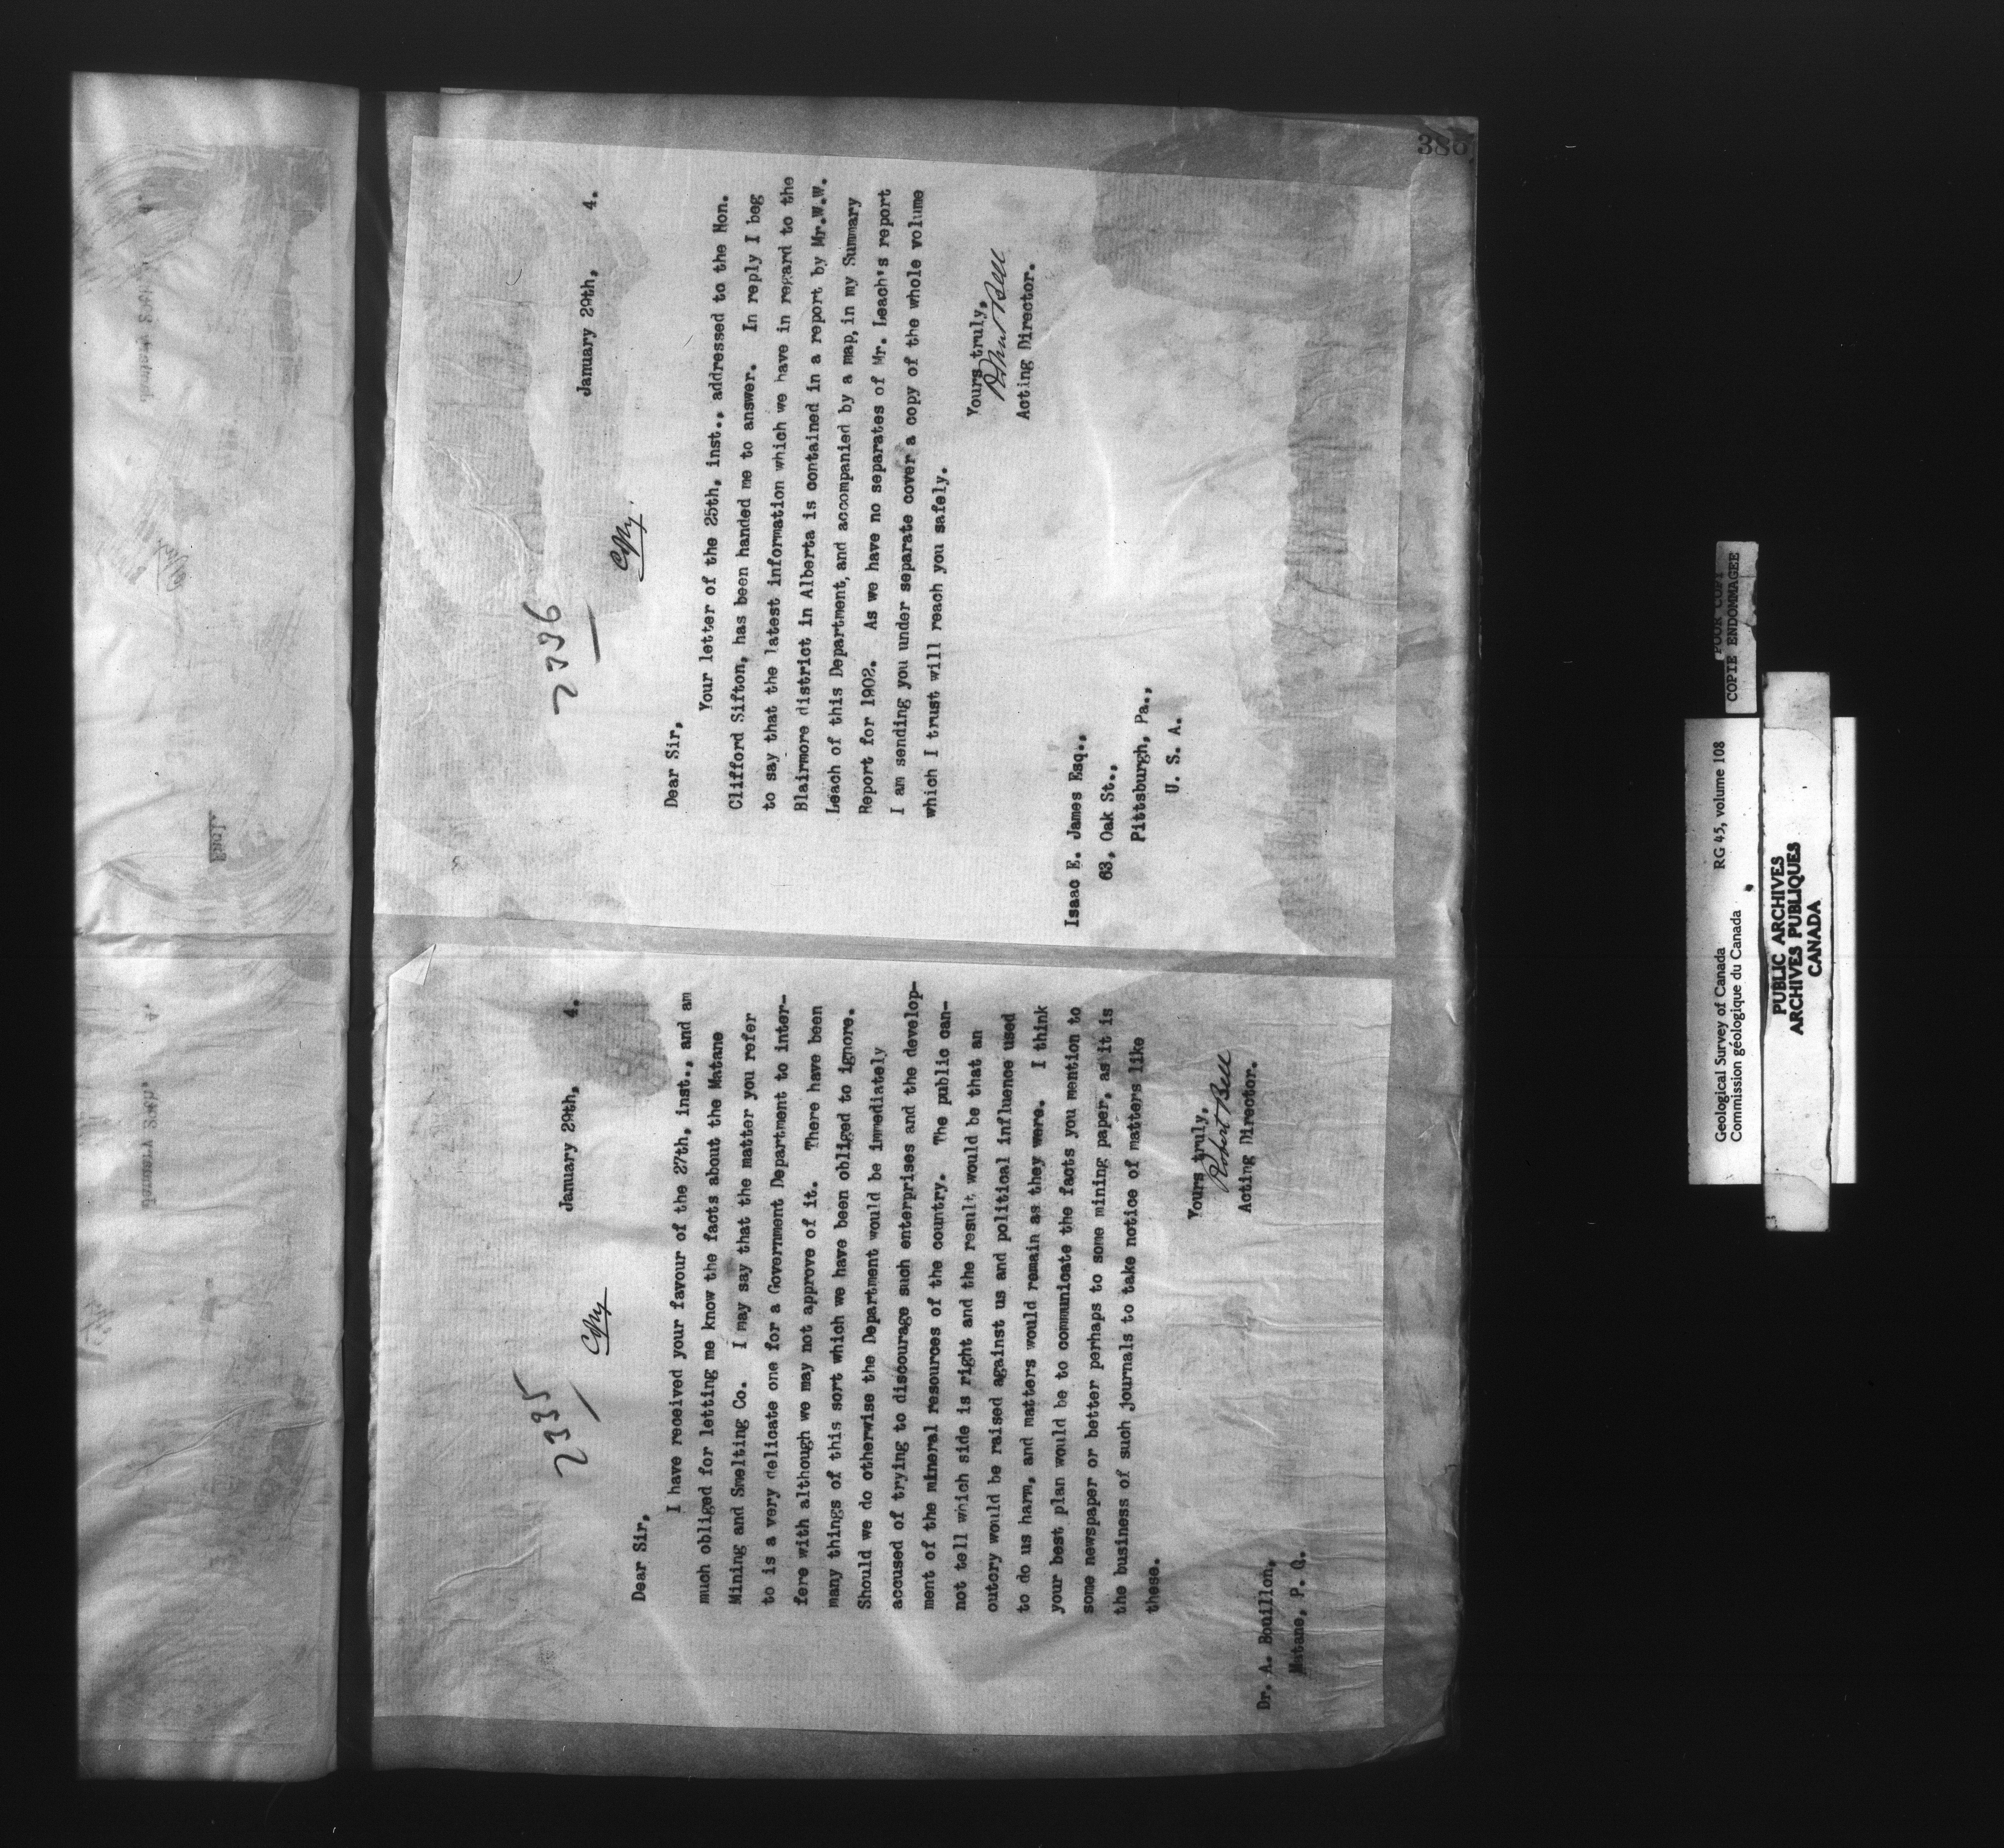 2335
January 29th, 4.
Copy
Dear Sir,
I have received your favour of the 27th, inst., and am
much obliged for letting me know the facts about the Matane
Mining and Smelting Co. I may say that the matter you refer
to is a very delicate one for a Government Department to inter-
fere with although we may not approve of it. There have been
many things of this sort which we have been obliged to ignore.
Should we do otherwise the Department would be immediately
accused of trying to discourage such enterprises and the develop-
ment of the mineral resources of the country. The public can-
not tell which side is right and the result would be that an
outcry would be raised against us and political influence used
to do us harm, and matters would remain as they were. I think
your best plan would be to communicate the facts you mention to
some newspaper or better perhaps to some mining paper, as it is
the business of such journals to take notice of matters like
these.
Yours truly,
Robert Bell
Acting Director.
Dr. A. Bouillon,
Matane, P. Q.
2336
January 29th, 4.
Copy
Dear Sir,
Your letter of the 25th, inst., addressed to the Hon.
Clifford Sifton, has been handed me to answer. In reply I beg
to say that the latest information which we have in regard to the
Blairmore district in Alberta is contained in a report by Mr.W.W.
Leach of this Department, and accompanied by a map, in my Summary
Report for 1902. As we have no separates of Mr. Leach's report
I am sending you under separate cover a copy of the whole volume
which I trust will reach you safely.
Yours truly,
Robert Bell
Acting Director.
Isaac E. James Esq.,
63, Oak St.,
Pittsburgh, Pa.,
U. S. A.
386
Geological Survey of Canada RG 45, volume 108
Commission géologique du Canada
PUBLIC ARCHIVES
ARCHIVES PUBLIQUES
CANADA
POOR COPY
COPIE ENDOMMAGEE